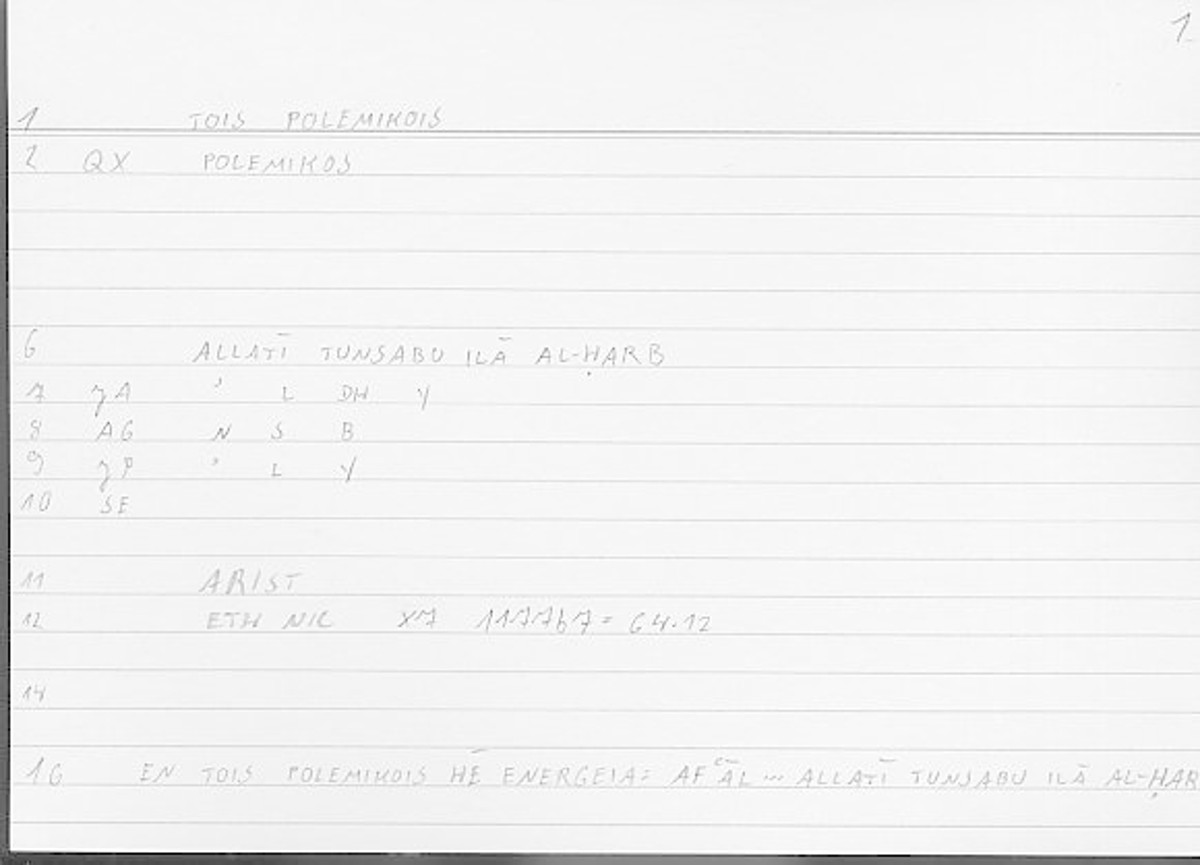 1
1 TOIS POLEMIKOIS
2 QX POLEMIKOS
6 ALLATĪ TUNSABU ILĀ AL-ḤARB
7 ʒA ʾ L DH Y
8 AG N S B
9 ʒP ʾ L Y
10 SE
11 ARIST
12 ETH NIC X7 1177b7 = 64.12
14
16 EN TOIS POLEMIKOIS HĒ ENERGEIA: AFʿĀL ... ALLATĪ TUNSABU ILĀ AL-ḤAR